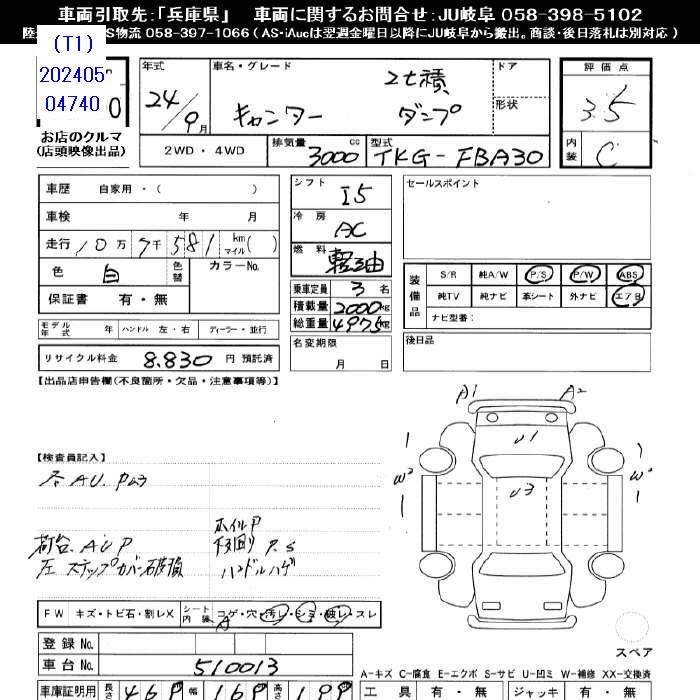 車両引取先:「兵庫県」 車両に関するお問合せ:JU岐阜 058-398-5102
S物流 058-397-1066 ( AS・iAucは翌週金曜日以降にJU岐阜から搬出。商談・後日落札は別対応 )
(T1)
202405
04740
0
お店のクルマ
(店頭映像出品)
年式 車名・グレード ドア 評価点
24/9月 2t積
キャンター ダンプ 形状 3.5
2WD・4WD 排気量 3000 cc 型式 TKG-FBA30 内装 C
車歴 自家用・( )
車検 年 月
走行 10万 7千 581 km マイル( )
色 白 色替 カラーNo.
保証書 有・無
モデル年式 年 ハンドル 左・右 ディーラー・並行
リサイクル料金 8.830 円 預託済
シフト I5
冷房 AC
燃料 軽油
乗車定員 3 名
積載量 2000kg
総重量 4975kg
名変期限
月 日
セールスポイント
装備品 S/R 純A/W P/S P/W ABS
純TV 純ナビ 革シート 外ナビ エアB
ナビ型番:
後日品
【出品店申告欄(不良箇所・欠品・注意事項等)】
【検査員記入】
各 AU. P
荷台 AUP
左 ステップカバー破損
ホイルP
下回り P.S
ハンドルハゲ
A1 A2
U1
U3
W2 W2
FW キズ・トビ石・割レX シート内装 コゲ・穴・汚レ・シミ・破レ・スレ
A
登録No.
車台No. 510013
車庫証明用 長さ 469 幅 169 高さ 199
スペア
A-キズ C-腐食 E-エクボ S-サビ U-凹ミ W-補修 XX-交換済
工具 有・無 ジャッキ 有・無